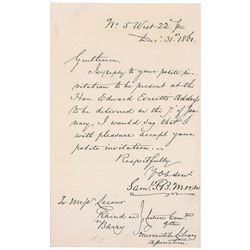 No 5 West 22d
Dec. 31st 1861.
Gentlemen.
In reply to your polite in-
vitation to be present at the
Hon. Edward Everett's Address
to be delivered on the 7th of Jan-
uary, I would say that I
with pleasure accept your
polite invitation.
Respectfully
Yr Ob Servt
Saml. F. B. Morse
To Messrs
Rhind &
Barry
Lecture Comte
of the
Mercantile Library
Association.